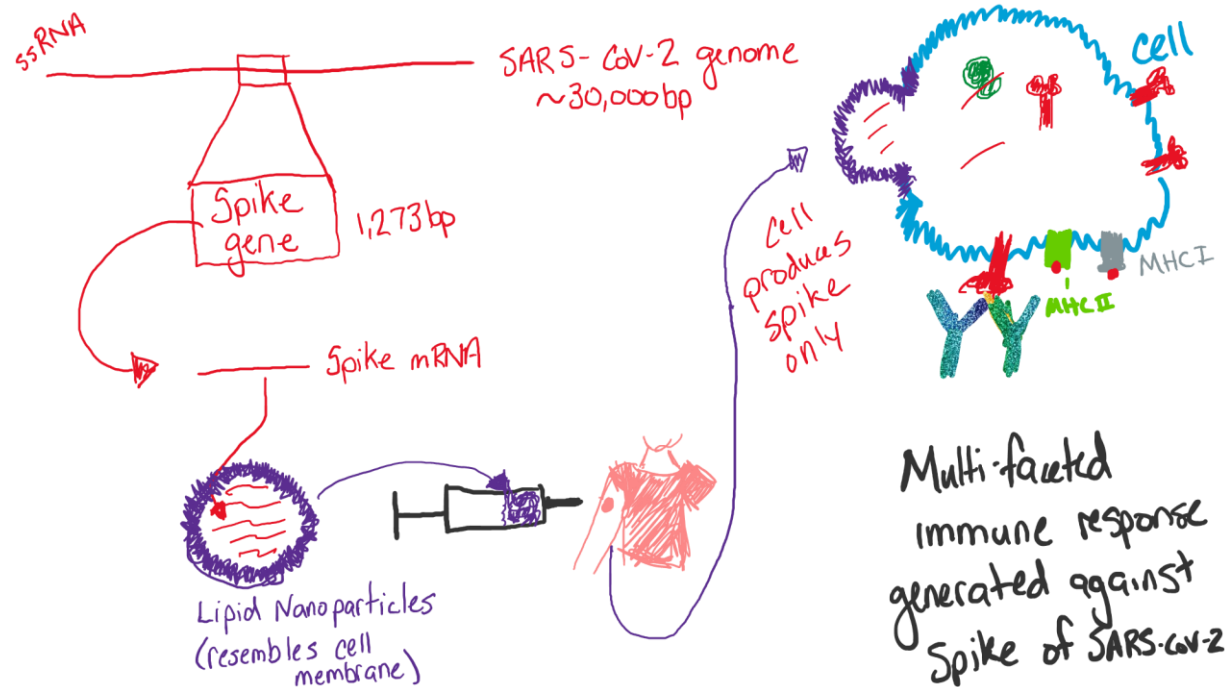 ssRNA
SARS-CoV-2 genome
~30,000bp
Spike
gene
1,273bp
Spike mRNA
Lipid Nanoparticles
(resembles cell
membrane)
Cell
produces
spike
only
cell
MHC I
MHC II
Multi-faceted
immune response
generated against
Spike of SARS-CoV-2